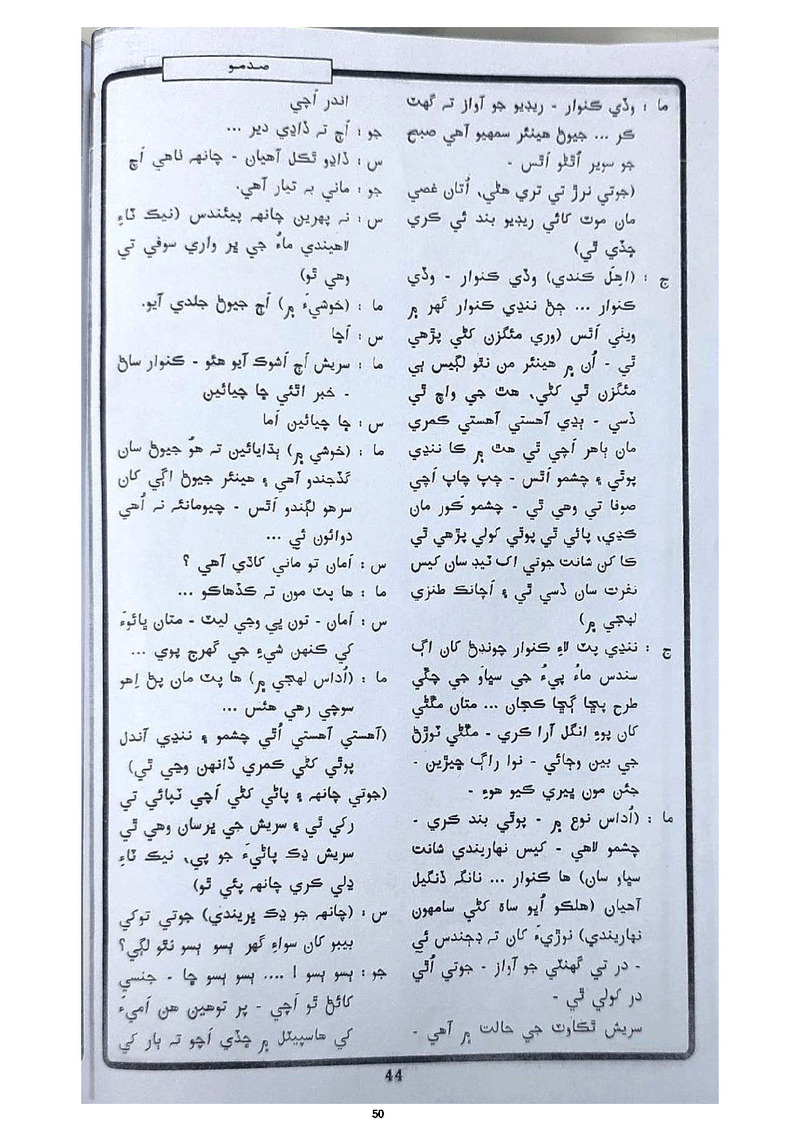 صدمو
ما : وڏي ڪنوار - ريڊيو جو آواز تہ گهٽ
ڪر ... جيوڻ هينئر سمهيو آهي صبح
جو سوير اُٿڻو اَٿس -
(جوتي نرڙ تي تري هڻي، اُتان غصي
مان موٽ کائي ريڊيو بند ئي ڪري
ڇڏي ٿي)
ج : (اهڪَل ڪندي) وڏي ڪنوار - وڏي
ڪنوار ... ڄڻ ننڍي ڪنوار گهر ۾
ويٺي اَٿس (وري مئگزن کڻي پڙهي
ٿي - اُن ۾ هينئر من نٿو لڳيس ٻي
مئگزن ٿي کڻي، هٿ جي واچ ٿي
ڏسي - ٻڍي آهستي آهستي ڪمري
مان ٻاهر اَچي ٿي هٿ ۾ ڪا ننڍي
پوٿي ۽ چشمو اَٿس - چپ چاپ اَچي
صوفا تي وهي ٿي - چشمو ڪَور مان
ڪڍي، پائي ٿي پوٿي کولي پڙهي ٿي
ڪا کن شانت جوتي اک ٽيڊ سان کيس
نفرت سان ڏسي ٿي ۽ اَچانڪ طنزي
لهجي ۾)
ج : ننڍي پٽ لاءِ ڪنوار چونڊڻ کان اڳ
سندس ماءُ پيءُ جي سڀاو جي چڱي
طرح پڇا ڳڇا ڪجان ... متان مڱڻي
کان پوءِ انگل آرا ڪري - مڱڻي ٽوڙڻ
جي بين وڄائي - نوا راڳ ڇيڙين -
جئن مون ڀيري ڪيو هوءِ -
ما : (اُداس نوع ۾ - پوٿي بند ڪري -
چشمو لاهي - کيس نهاريندي شانت
سڀاو سان) ها ڪنوار ... نانگہ ڏنگيل
آهيان (هلڪو اُڀو ساھ کڻي سامهون
نهاريندي) نوڙيءَ کان تہ ڊڄندس ئي
- در تي گهنٽي جو آواز - جوتي اُٿي
در کولي ٿي -
سريش ٿڪاوٽ جي حالت ۾ آهي -
اندر اَچي
جو : اَڄ تہ ڏاڍي دير ...
س : ڏاڍو ٿڪل آهيان - چانهہ ٺاهي اَچ
جو : ماني بہ تيار آهي.
س : نہ پهرين چانهہ پيئندس (نيڪ ٽاءِ
لاهيندي ماءُ جي ڀر واري سوفي تي
وهي ٿو)
ما : (خوشيءَ ۾) اَڄ جيوڻ جلدي آيو.
س : اَڇا
ما : سريش اَڄ اَشوڪ آيو هئو - ڪنوار ساڻ
- خبر اٿئي ڇا چيائين
س : ڇا چيائين اَما
ما : (خوشي ۾) ٻڌايائين تہ هوُ جيوڻ سان
گڏجندو آهي ۽ هينئر جيوڻ اڳي کان
سرهو لڳندو اَٿس - چيومانئہ نہ اُهي
دوائون ئي ...
س : اَمان تو ماني کاڌي آهي ؟
ما : ها پٽ مون تہ کڏهاڪو ...
س : اَمان - تون ڀي وڃي ليٽ - متان ڀائوءَ
کي ڪنهن شيءِ جي گهرج پوي ...
ما : (اُداس لهجي ۾) ها پٽ مان پڻ اِهو
سوچي رهي هئس ...
(آهستي آهستي اُٿي چشمو ۽ ننڍي آندل
پوٿي کڻي ڪمري ڏانهن وڃي ٿي)
(جوتي چانهہ ۽ پاڻي کڻي اَچي ٽپائي تي
رکي ٿي ۽ سريش جي پرسان وهي ٿي
سريش ڍڪ پاڻيءَ جو پي، نيڪ ٽاءِ
ڍلي ڪري چانهہ پئي ٿو)
س : (چانهہ جو ڍڪ ڀريندي) جوتي توکي
بيبو کان سواءِ گهر ٻسو ٻسو نٿو لڳي؟
جو : ٻسو ٻسو ا .... ٻسو ٻسو ڇا - جنسي
کائڻ ٿو اَچي - پر توهين هن اَميءَ
کي هاسپيٽل ۾ ڇڏي اَچو تہ ٻار کي
44
50